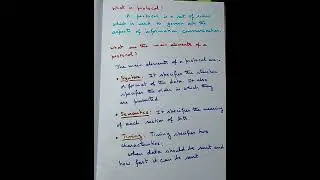 What is protocol?
A protocol is a set of rules
which is used to govern all the
aspects of information communication.
What are the main elements of a
protocol?
The main elements of a protocol are:
• Syntax: It specifies the structure
or format of the data. It also
specifies the order in which they
are presented.
• Semantics: It specifies the meaning
of each section of bits.
• Timing: Timing specifies two
characteristics:
When data should be sent and
how fast it can be sent